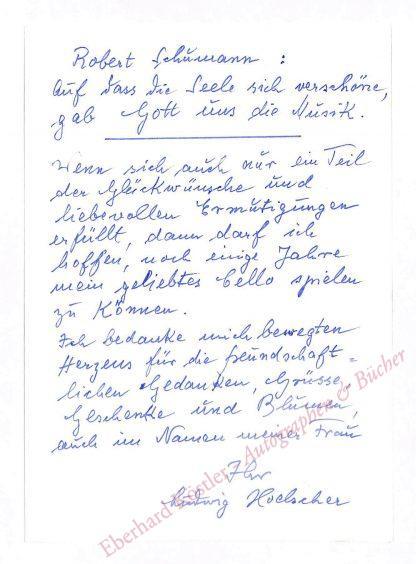 Robert Schumann :
Auf dass die Seele sich verschöne,
gab Gott uns die Musik.
Wenn sich auch nur ein Teil
der Glückwünsche und
liebevollen Ermutigungen
erfüllt, dann darf ich
hoffen, noch einige Jahre
mein geliebtes Cello spielen
zu können.
Ich bedanke mich bewegten
Herzens für die freundschaft=
lichen Gedanken, Grüsse,
Geschenke und Blumen,
auch im Namen meiner Frau
Ihr
Ludwig Hoelscher
Eberhard Köstler Autographen & Bücher